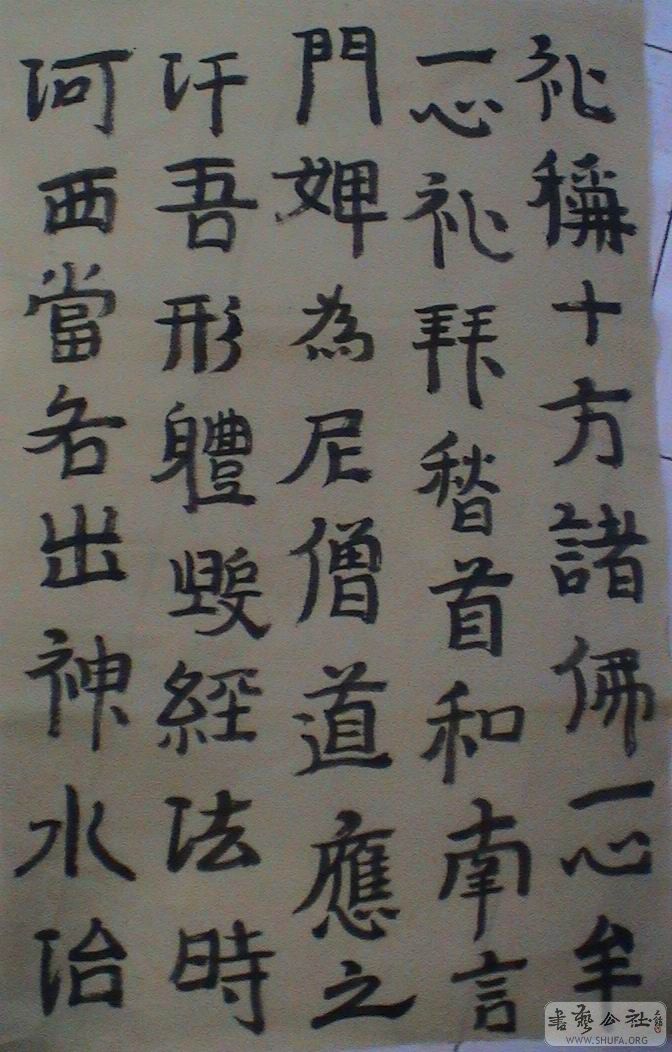 礼稱十方諸佛一心牟
一心礼拜稽首和南言
門婢為尼僧道應之
汗吾形體毀經法時
河西當各出神水治
書藝公社
WWW.SHUFA.ORG